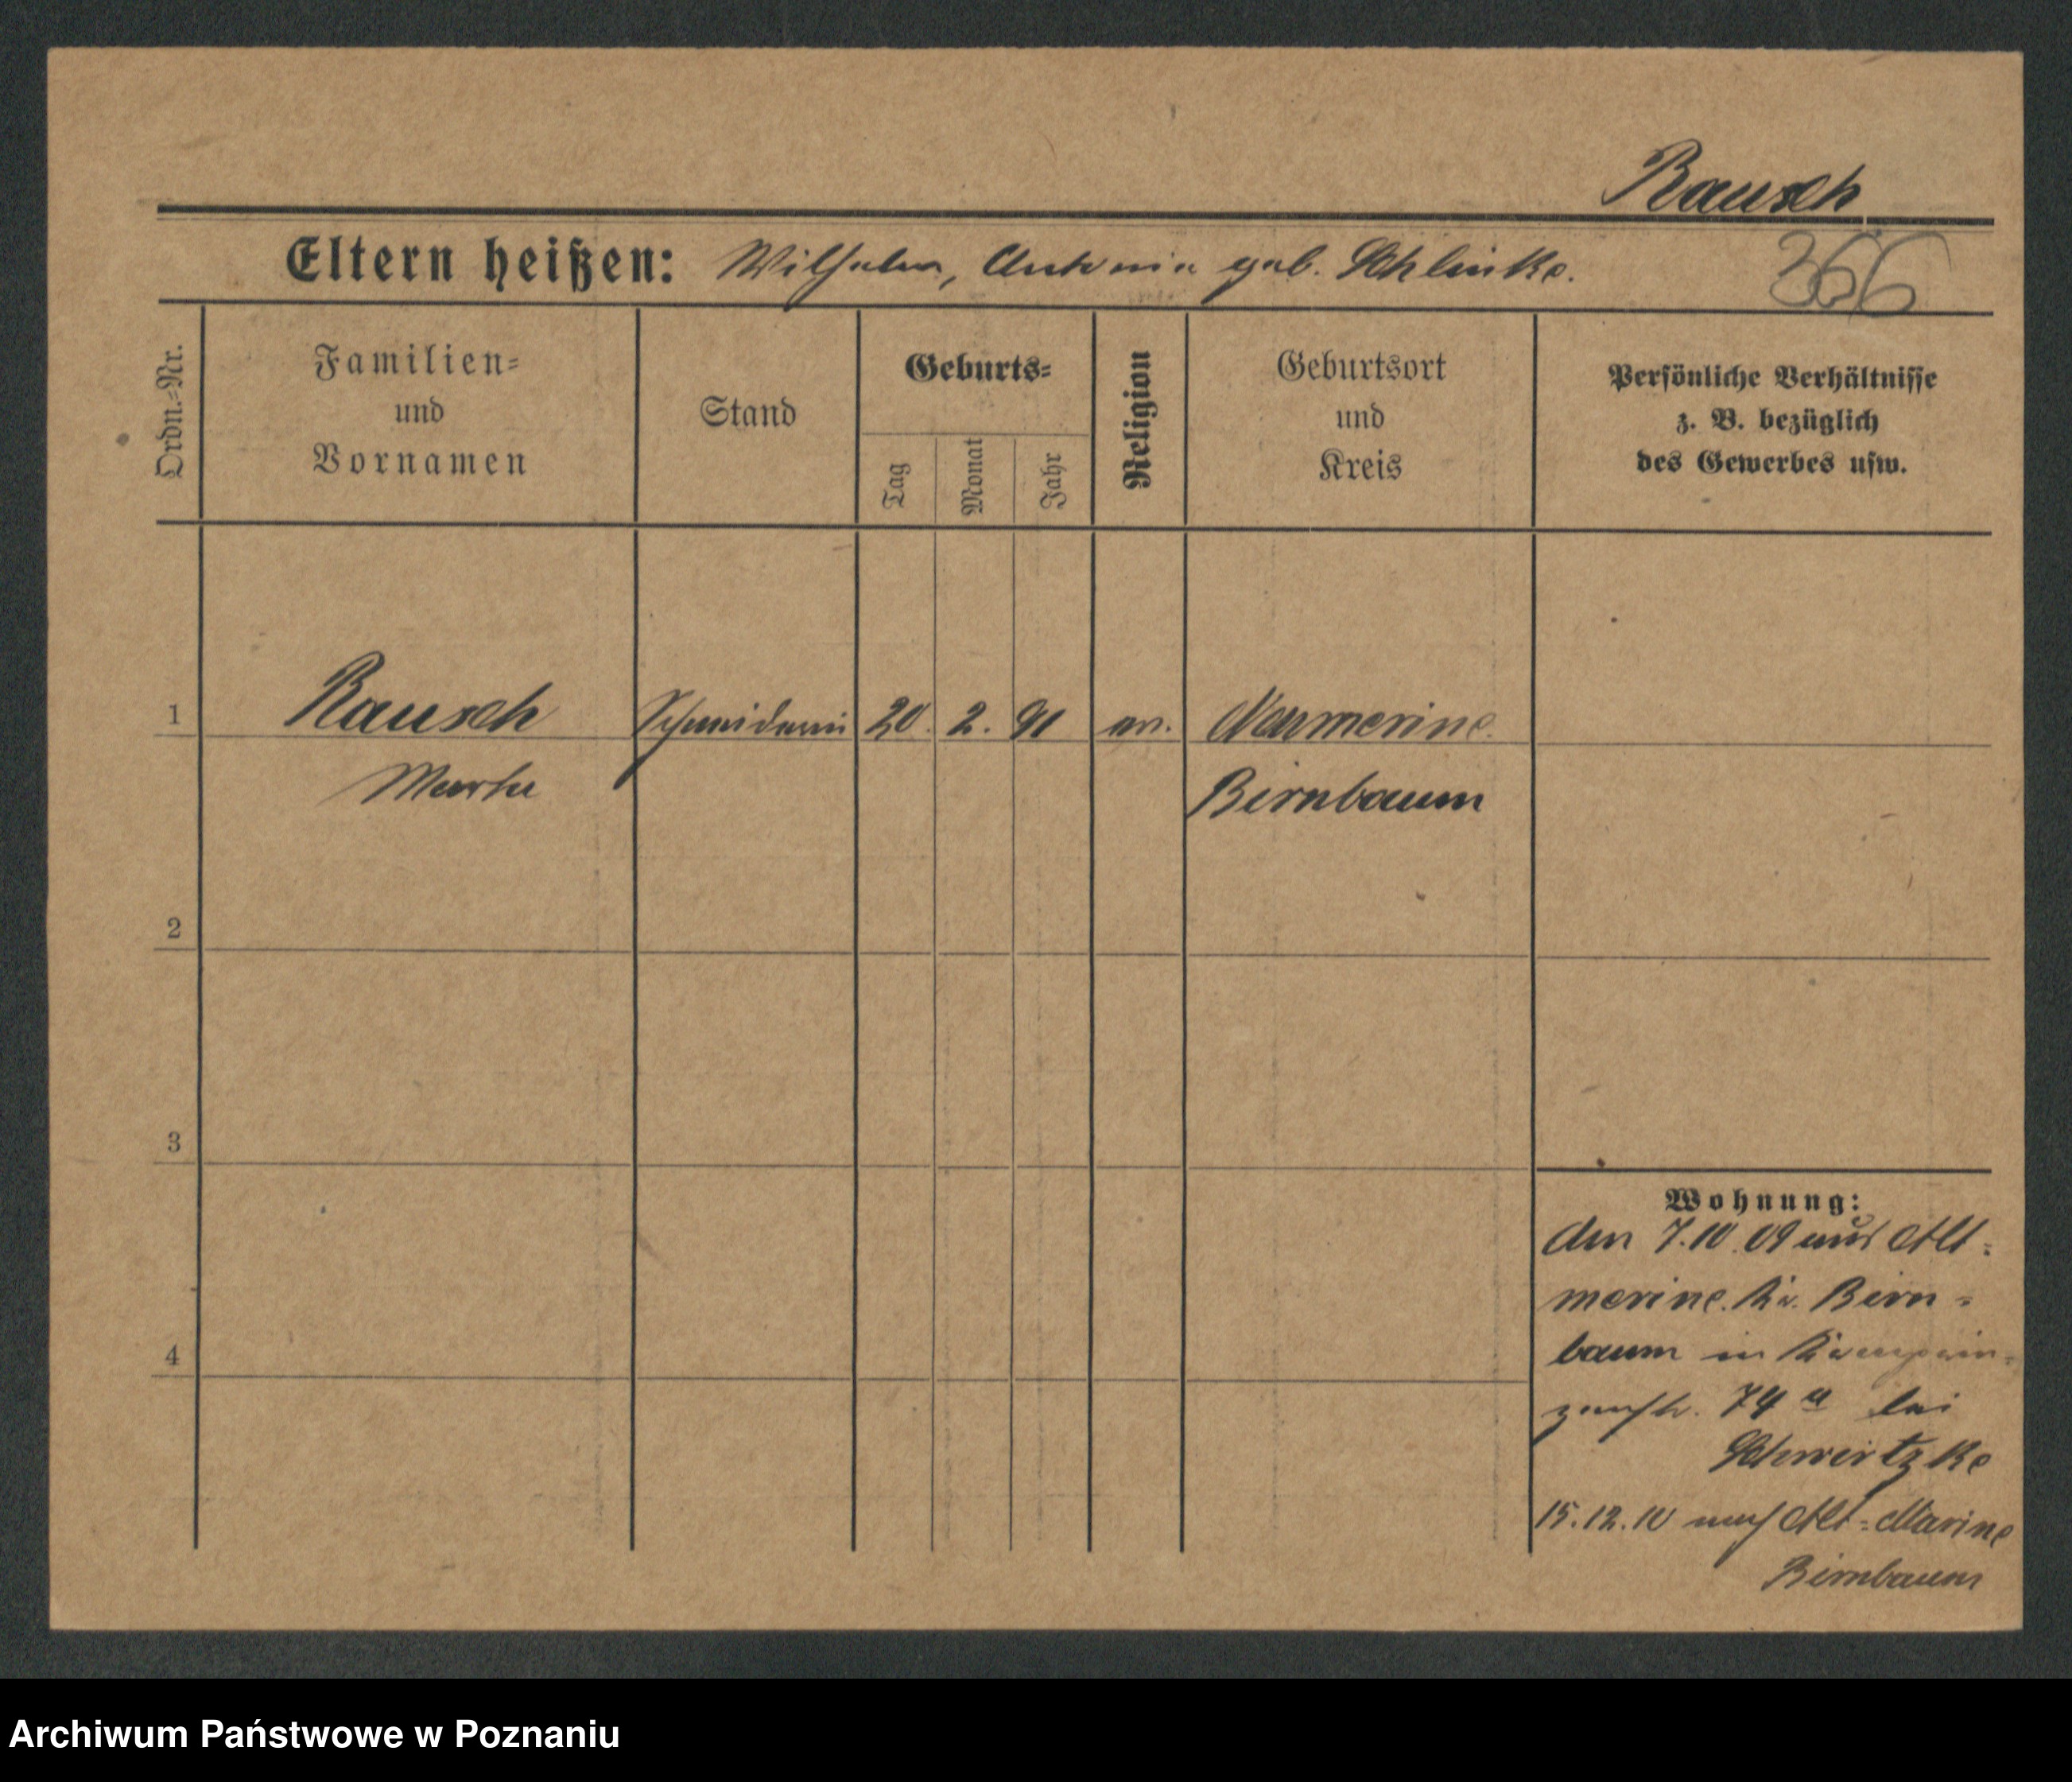 Rausch
Eltern heißen: Wilhelm, Antonie geb. Schlinke.
366
Ordn.-Nr.
Familien-
und
Vornamen
Stand
Geburts-
Tag
Monat
Jahr
Religion
Geburtsort
und
Kreis
Persönliche Verhältnisse
z. B. bezüglich
des Gewerbes usw.
1
Rausch
Schneiderin
20.
2.
91
ev.
Neumerine
Martha
Birnbaum
2
3
4
Wohnung:
Am 7.10.09 aus Alt-
merine. Kr. Birn-
baum in
74 a bei
Schwirtzke
15.12.10 nach Alt-Marine
Birnbaum
Archiwum Państwowe w Poznaniu